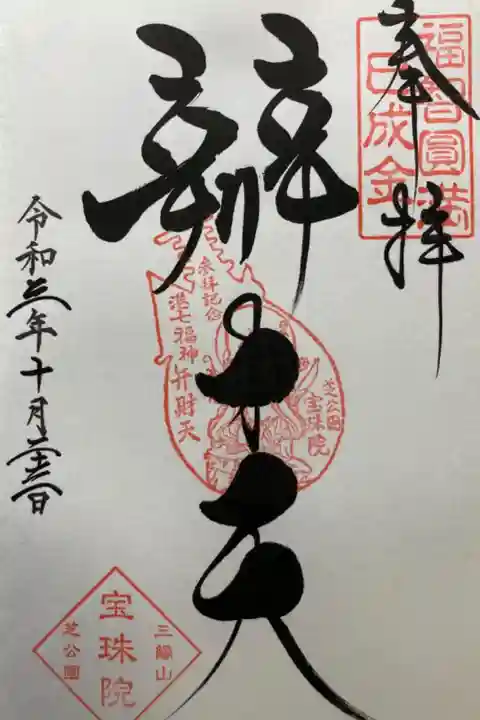 奉拝
福智圓満
巳成金
辯才天
参拝記念
港七福神弁財天
芝公園
宝珠院
令和三年十月二十三日
三縁山
宝珠院
芝公園